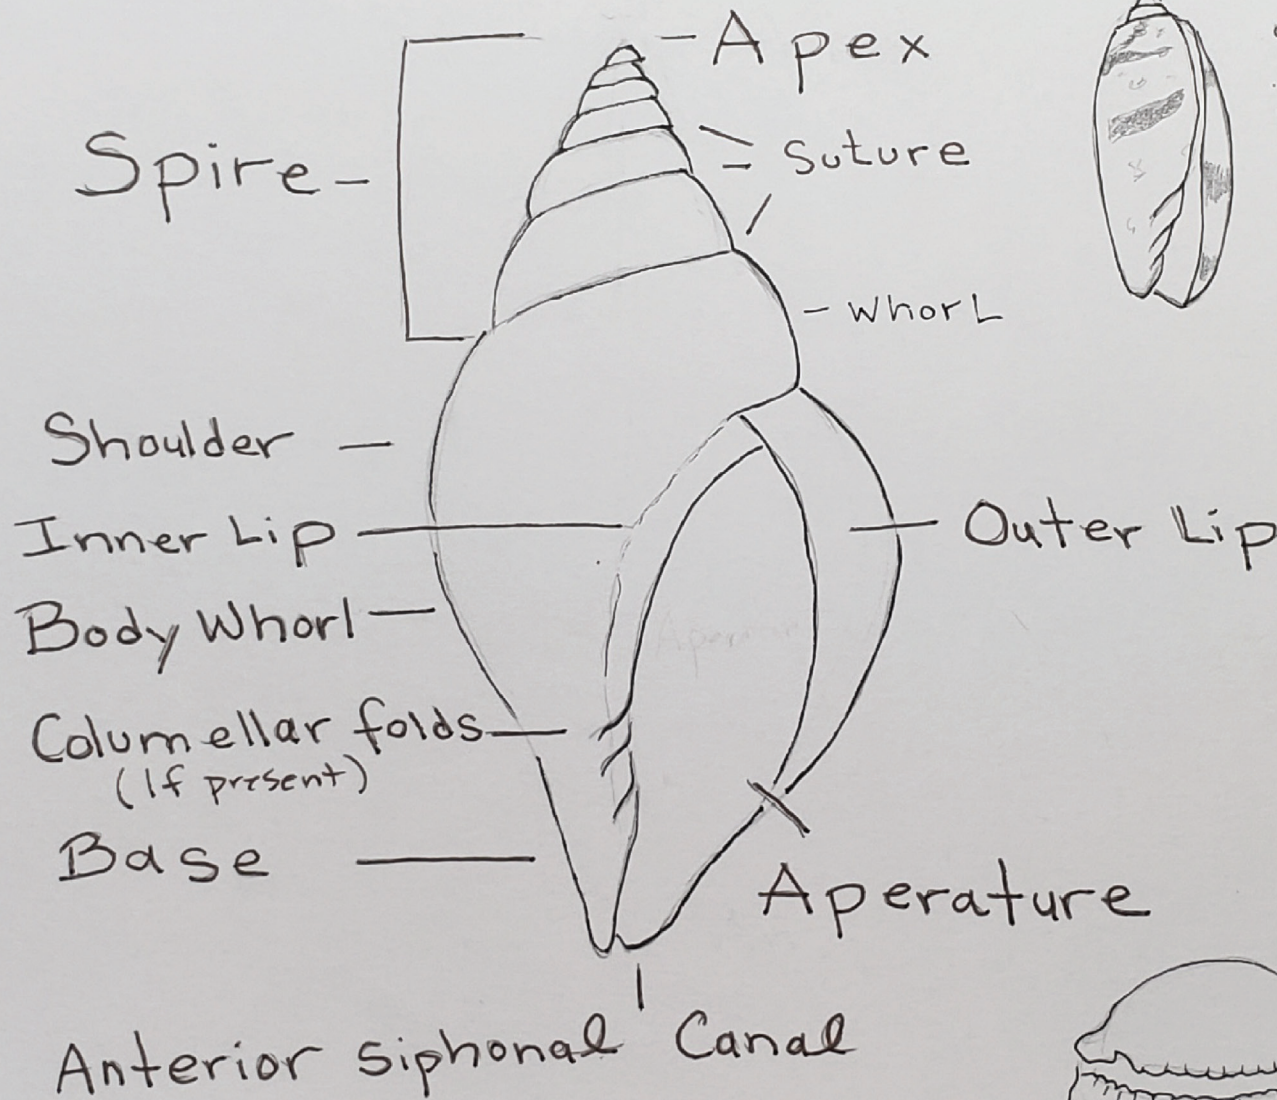 Apex
Spire
Suture
Whorl
Shoulder
Inner Lip
Outer Lip
Body Whorl
Columellar folds
(If present)
Base
Aperature
Anterior siphonal Canal